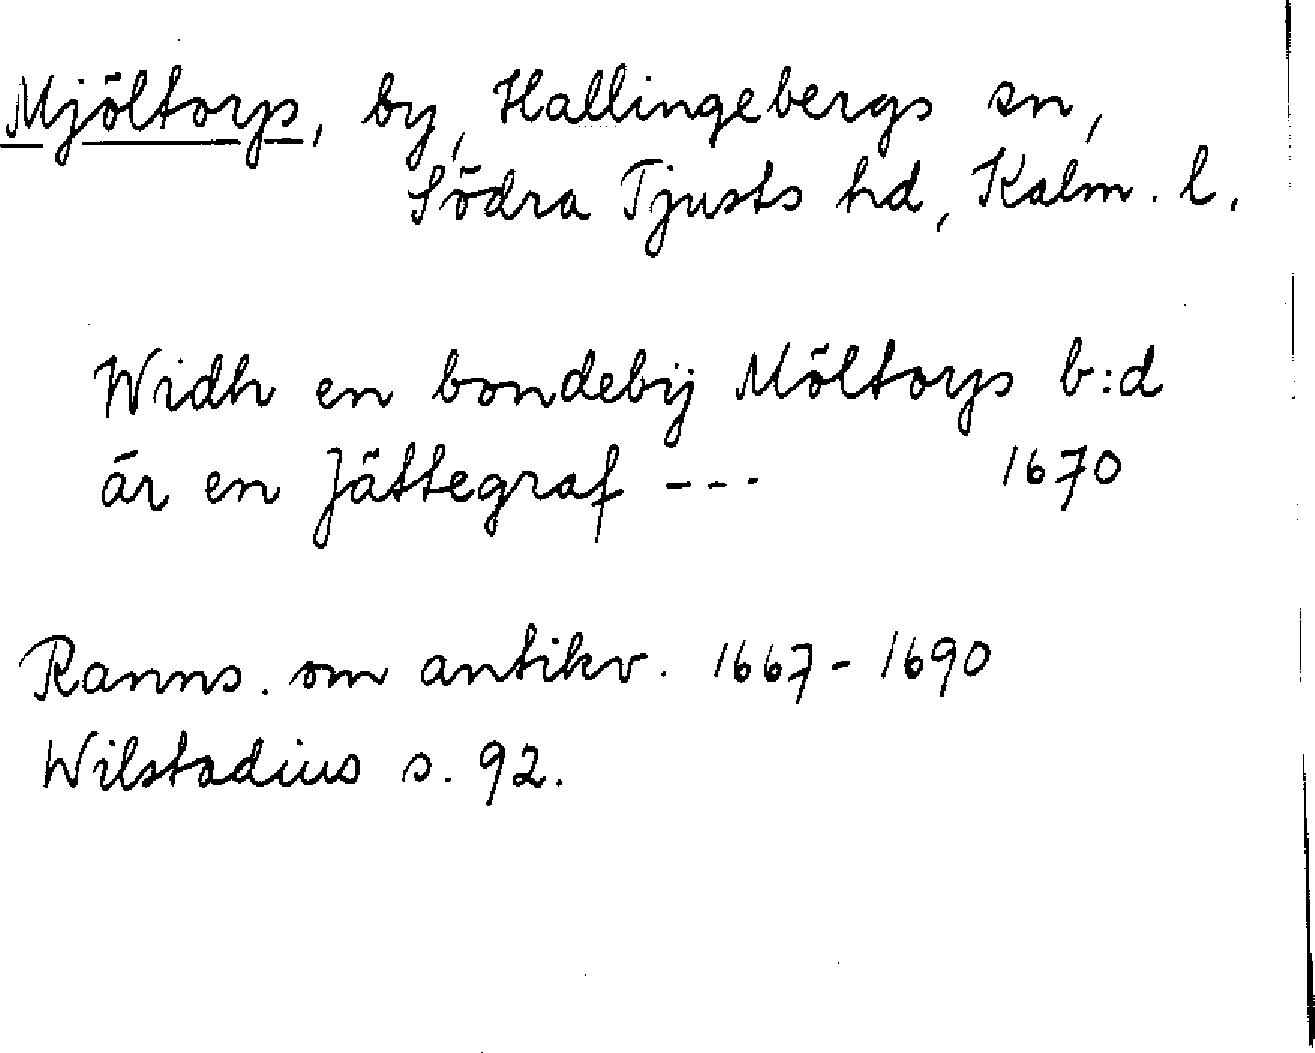 Mjöltorp, by, Hallingebergs sn,
Södra Tjusts hd, Kalm. l.
Widh en bondebÿ Möltorp b:d
är en Jättegraf ---   1670
Ranns. om antikv. 1667-1690
Wilstadius s. 92.